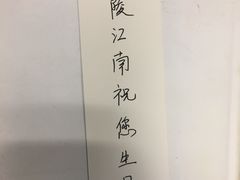 陵江南祝您生